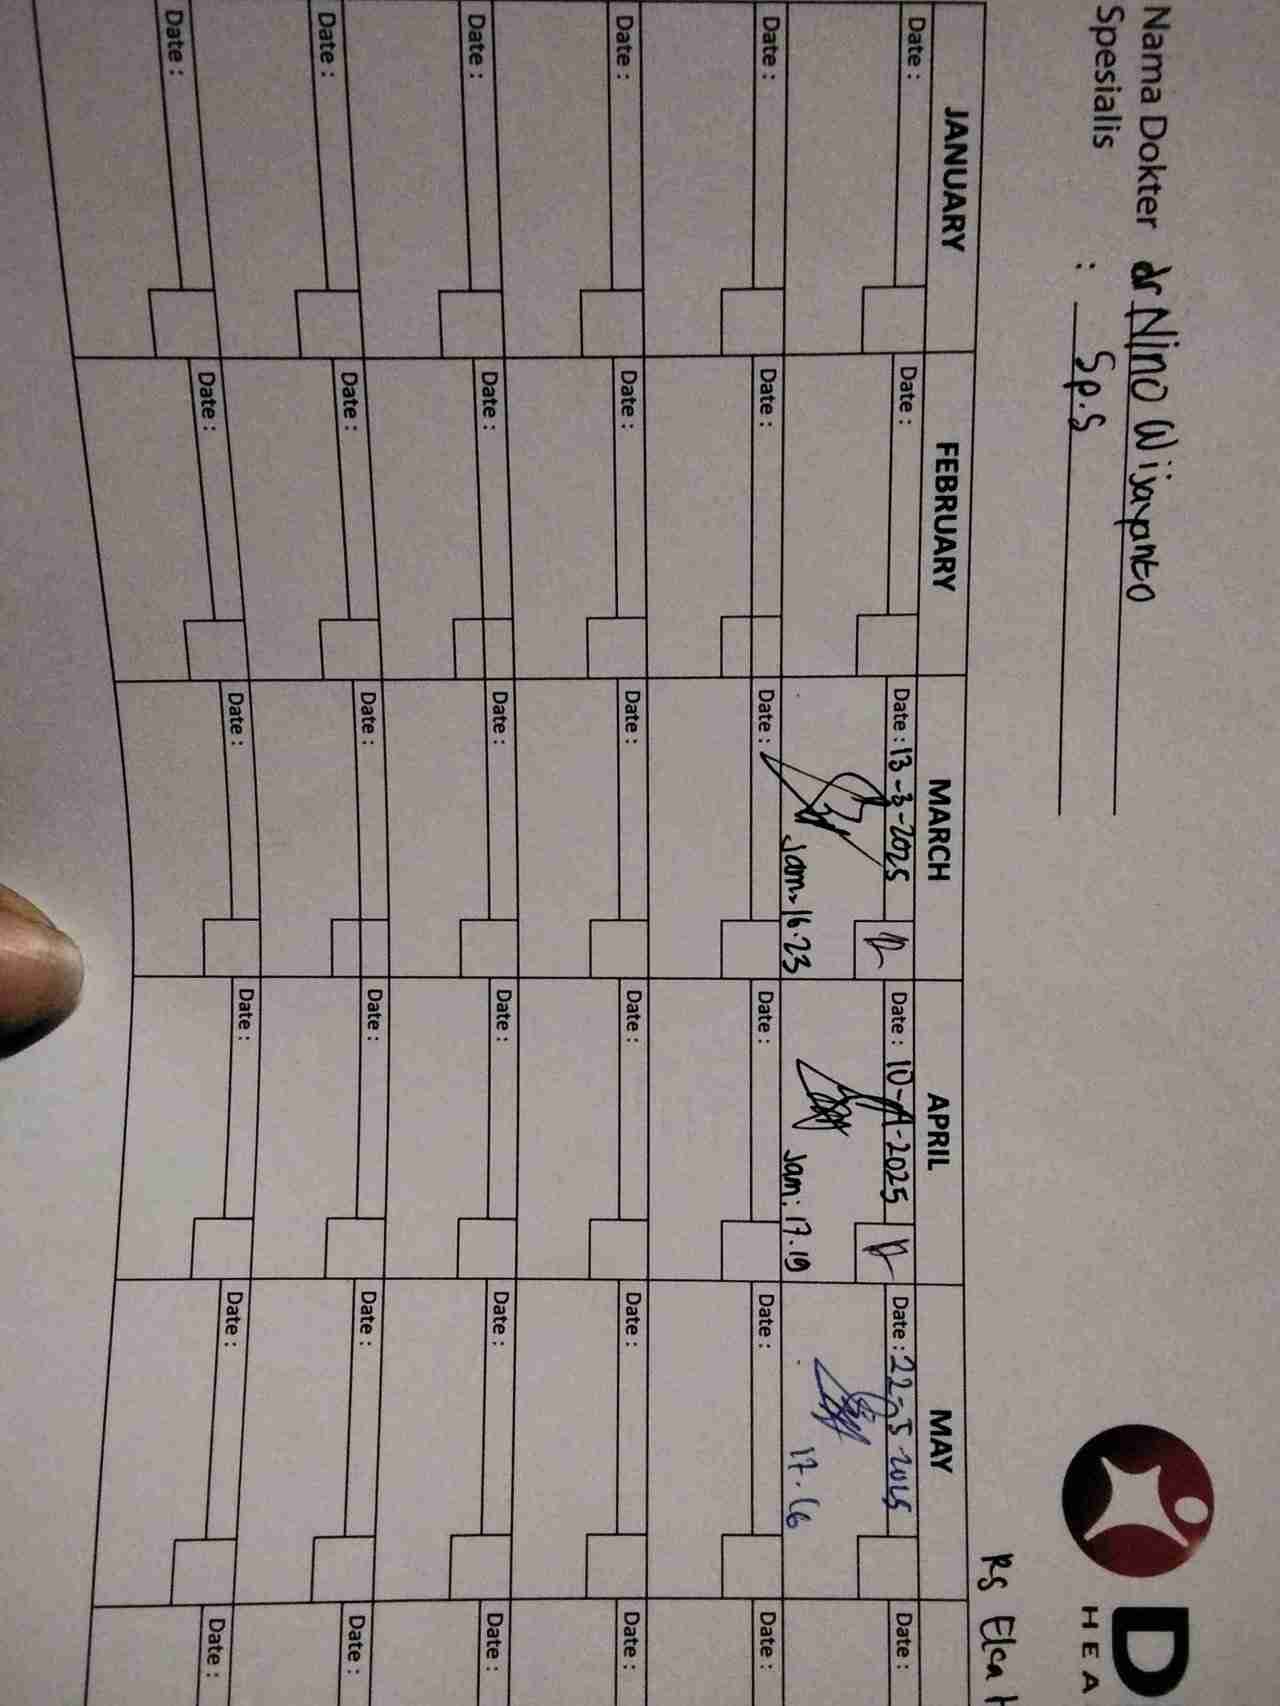 Nama Dokter dr Nino Wijayanto
Spesialis : Sp.S
D
HEA
RS Elca
JANUARY FEBRUARY MARCH APRIL MAY
Date : Date : Date : 13-3-2025 Date : 10-4-2025 Date : 22-5-2025 Date :
Jam 16.23 Jam : 17.19 17.16
Date : Date : Date : Date : Date : Date :
Date : Date : Date : Date : Date : Date :
Date : Date : Date : Date : Date : Date :
Date : Date : Date : Date : Date : Date :
Date : Date : Date : Date : Date : Date :